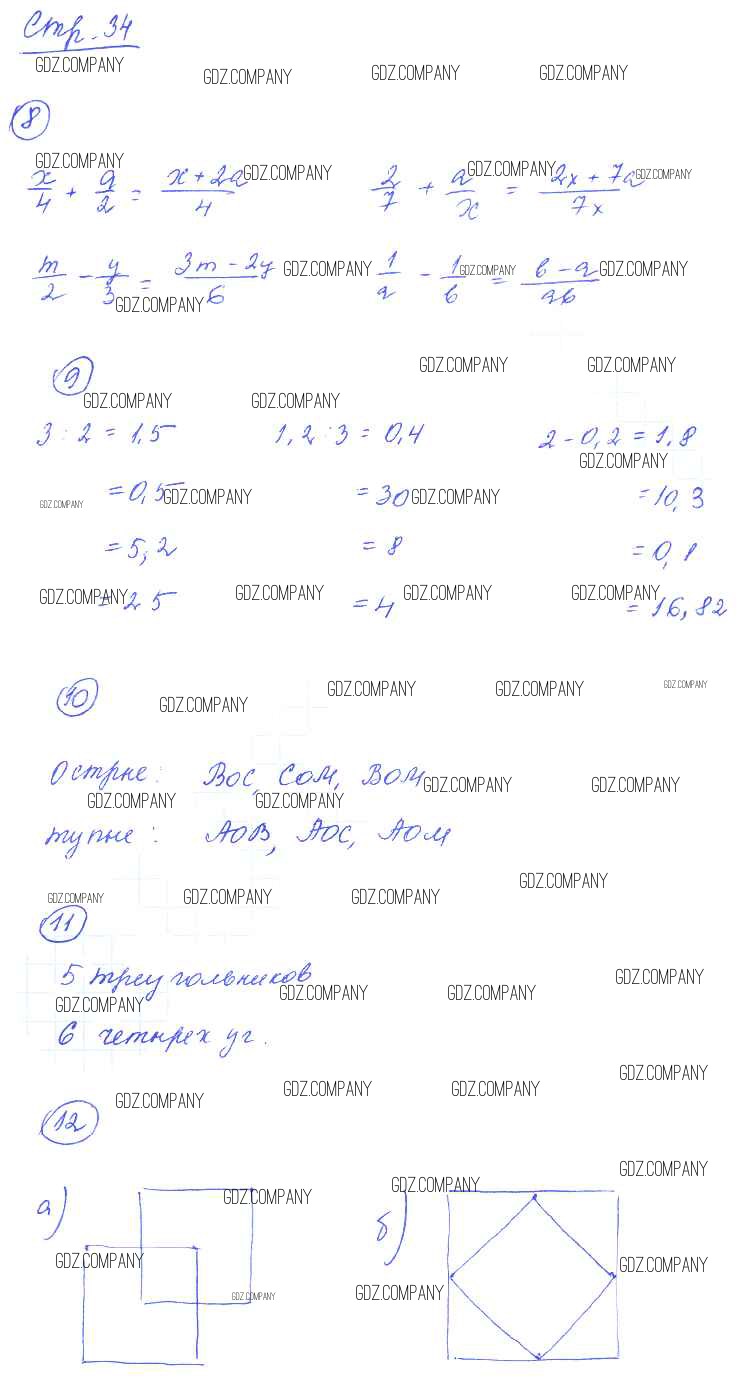 Стр. 34
GDZ.COMPANY GDZ.COMPANY GDZ.COMPANY GDZ.COMPANY
8
GDZ.COMPANY GDZ.COMPANY GDZ.COMPANY GDZ.COMPANY
x/4 + a/2 = (x + 2a)/4 2/7 + a/x = (2x + 7a)/7x
m/2 - y/3 = (3m - 2y)/6 1/a - 1/b = (b - a)/ab
GDZ.COMPANY GDZ.COMPANY GDZ.COMPANY GDZ.COMPANY
9
GDZ.COMPANY GDZ.COMPANY GDZ.COMPANY GDZ.COMPANY
3 : 2 = 1,5 1,2 : 3 = 0,4 2 - 0,2 = 1,8
GDZ.COMPANY
= 0,5 = 30 = 10,3
GDZ.COMPANY GDZ.COMPANY GDZ.COMPANY
= 5,2 = 8 = 0,1
= 25 = 4 = 16,82
GDZ.COMPANY GDZ.COMPANY GDZ.COMPANY GDZ.COMPANY
10
GDZ.COMPANY GDZ.COMPANY GDZ.COMPANY GDZ.COMPANY
Острые: BOC, COM, BOM
GDZ.COMPANY GDZ.COMPANY GDZ.COMPANY GDZ.COMPANY
тупые: AOB, AOC, AOM
GDZ.COMPANY GDZ.COMPANY GDZ.COMPANY GDZ.COMPANY
11
5 треугольников
GDZ.COMPANY GDZ.COMPANY GDZ.COMPANY GDZ.COMPANY
6 четырех уг.
GDZ.COMPANY GDZ.COMPANY GDZ.COMPANY GDZ.COMPANY
12
а) б)
GDZ.COMPANY GDZ.COMPANY GDZ.COMPANY
GDZ.COMPANY GDZ.COMPANY GDZ.COMPANY GDZ.COMPANY